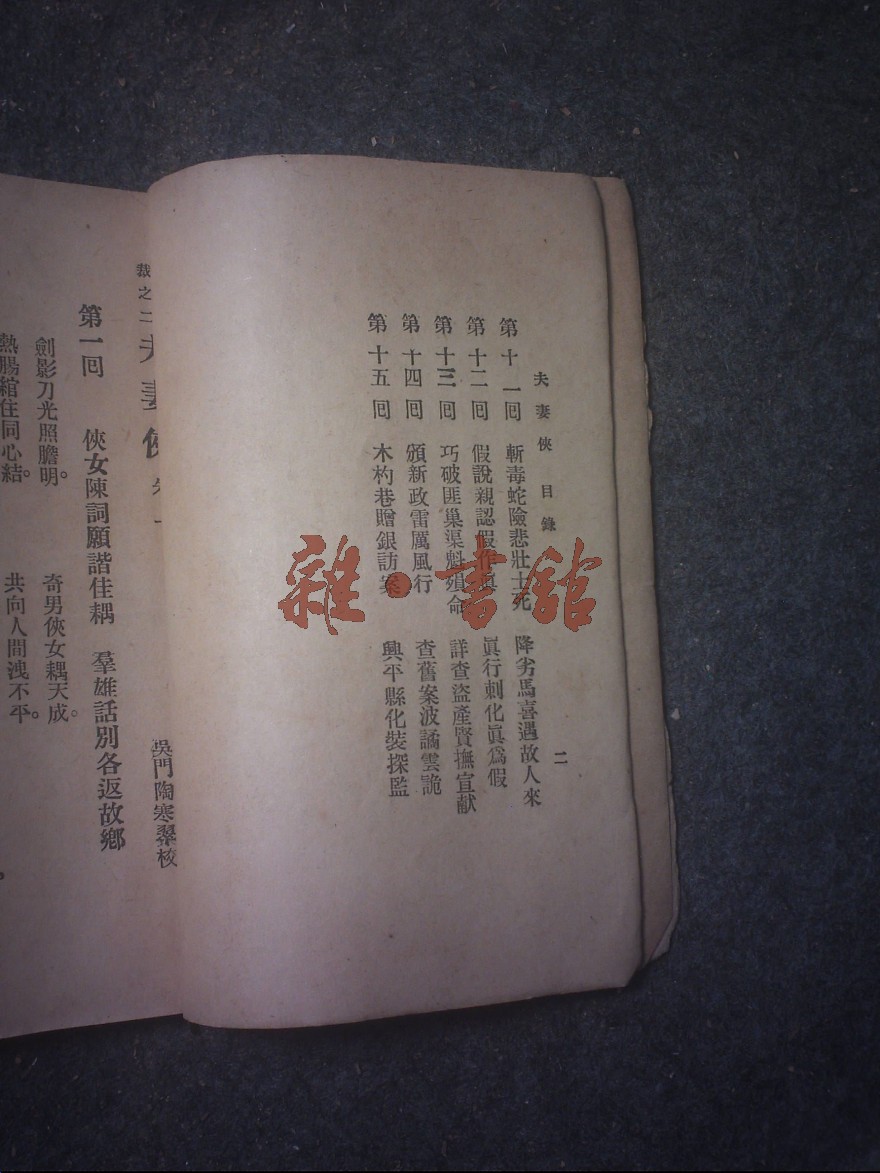 夫妻俠 目錄 二
第十一回 斬毒蛇險悲壯士死 降劣馬喜遇故人來
第十二回 假說親認假作眞 眞行刺化眞爲假
第十三回 巧破匪巢渠魁殞命 詳查盜產賢撫宣猷
第十四回 頒新政雷厲風行 查舊案波譎雲詭
第十五回 木杓巷贈銀訪案 興平縣化裝探監
裁之二夫妻俠卷一
吳門陶寒翠校
第一回 俠女陳詞願諧佳耦 羣雄話別各返故鄉
劍影刀光照膽明。 奇男俠女耦天成。
熱腸綰住同心結。 共向人間洩不平。
雜·書館